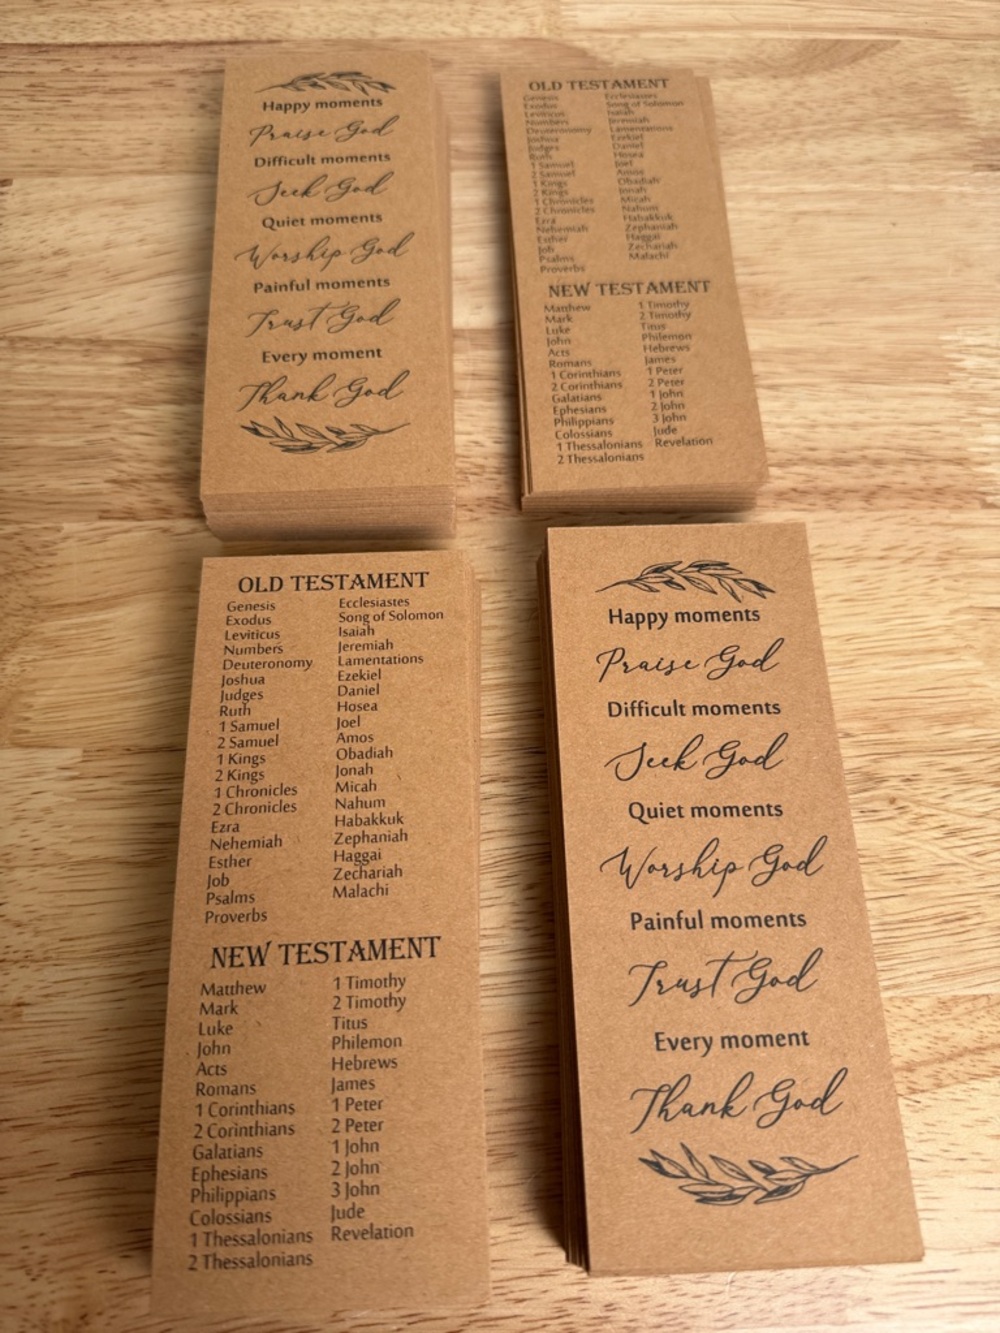 Happy moments
Praise God
Difficult moments
Seek God
Quiet moments
Worship God
Painful moments
Trust God
Every moment
Thank God
OLD TESTAMENT
Genesis
Exodus
Leviticus
Numbers
Deuteronomy
Joshua
Judges
Ruth
1 Samuel
2 Samuel
1 Kings
2 Kings
1 Chronicles
2 Chronicles
Ezra
Nehemiah
Esther
Job
Psalms
Proverbs
Ecclesiastes
Song of Solomon
Isaiah
Jeremiah
Lamentations
Ezekiel
Daniel
Hosea
Joel
Amos
Obadiah
Jonah
Micah
Nahum
Habakkuk
Zephaniah
Haggai
Zechariah
Malachi
NEW TESTAMENT
Matthew
Mark
Luke
John
Acts
Romans
1 Corinthians
2 Corinthians
Galatians
Ephesians
Philippians
Colossians
1 Thessalonians
2 Thessalonians
1 Timothy
2 Timothy
Titus
Philemon
Hebrews
James
1 Peter
2 Peter
1 John
2 John
3 John
Jude
Revelation
OLD TESTAMENT
Genesis
Exodus
Leviticus
Numbers
Deuteronomy
Joshua
Judges
Ruth
1 Samuel
2 Samuel
1 Kings
2 Kings
1 Chronicles
2 Chronicles
Ezra
Nehemiah
Esther
Job
Psalms
Proverbs
Ecclesiastes
Song of Solomon
Isaiah
Jeremiah
Lamentations
Ezekiel
Daniel
Hosea
Joel
Amos
Obadiah
Jonah
Micah
Nahum
Habakkuk
Zephaniah
Haggai
Zechariah
Malachi
NEW TESTAMENT
Matthew
Mark
Luke
John
Acts
Romans
1 Corinthians
2 Corinthians
Galatians
Ephesians
Philippians
Colossians
1 Thessalonians
2 Thessalonians
1 Timothy
2 Timothy
Titus
Philemon
Hebrews
James
1 Peter
2 Peter
1 John
2 John
3 John
Jude
Revelation
Happy moments
Praise God
Difficult moments
Seek God
Quiet moments
Worship God
Painful moments
Trust God
Every moment
Thank God